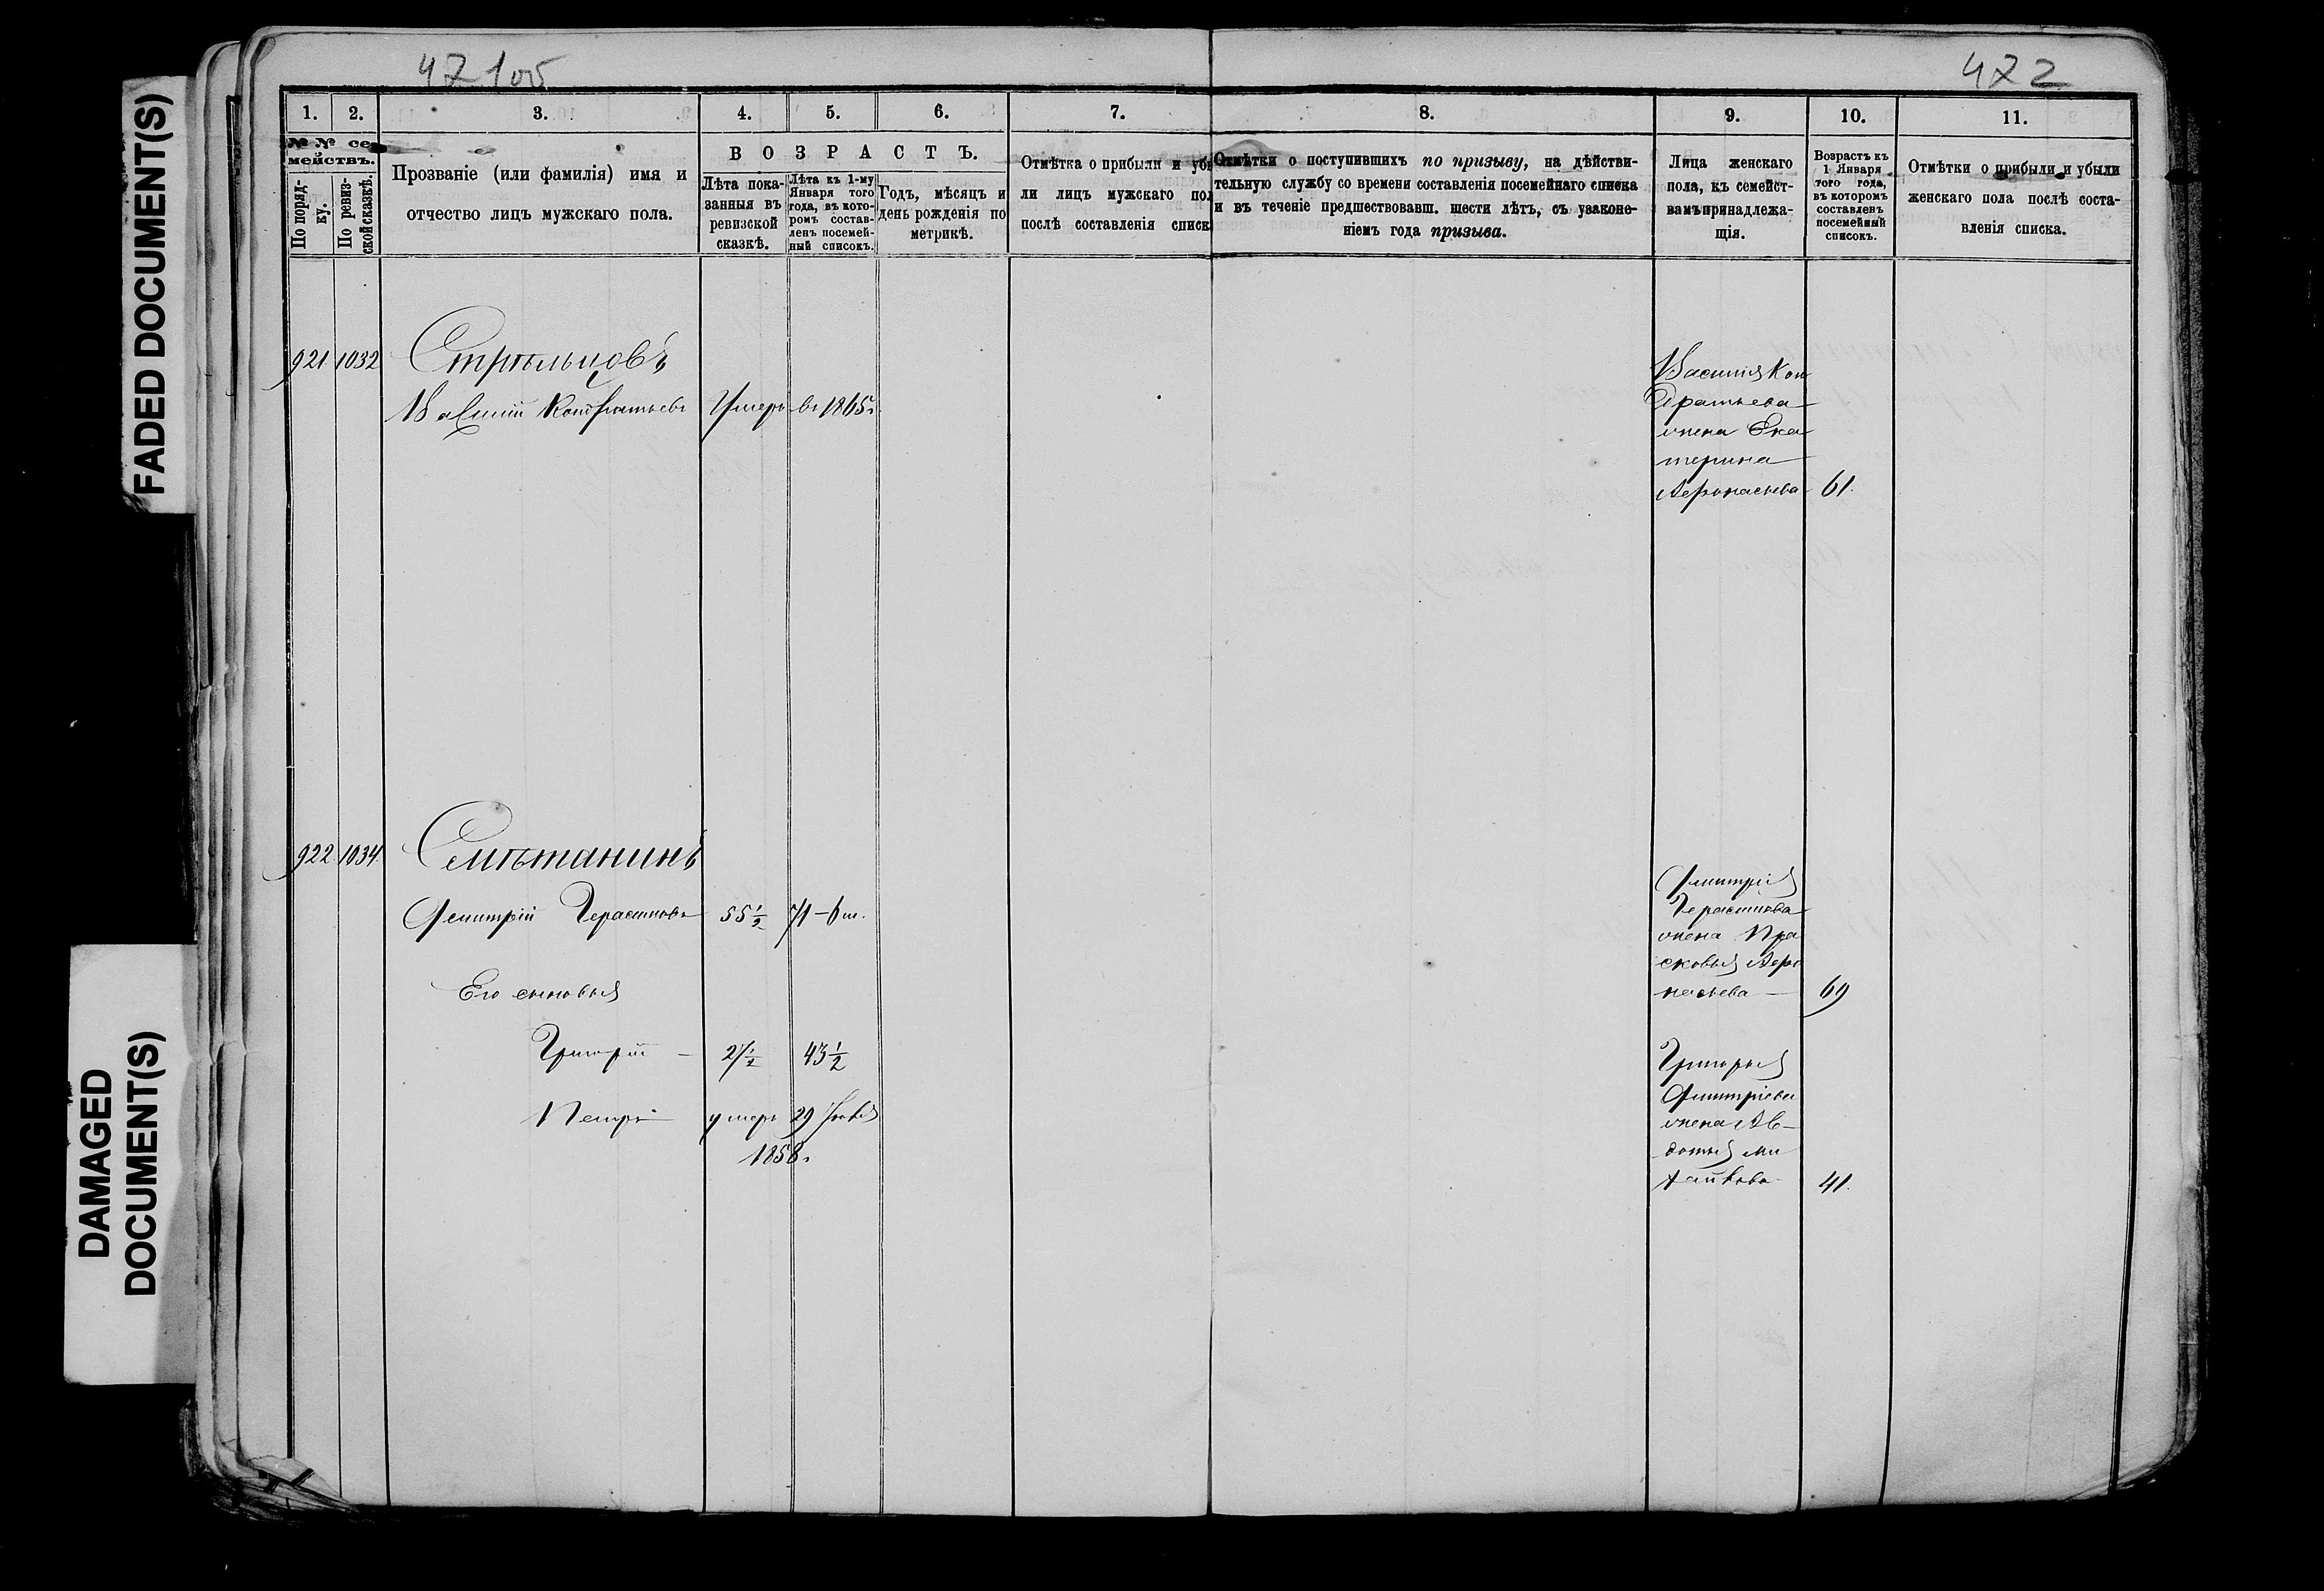 FADED DOCUMENT(S)
DAMAGED
DOCUMENT(S)
47 105
472
1.
2.
3.
4.
5.
6.
7.
8.
9.
10.
11.
№ № се-
мействъ.
По поряд-
ку.
По ревиз-
ской сказкѣ.
Прозваніе (или фамилія) имя и
отчество лицъ мужскаго пола.
ВОЗРАСТЪ.
Лѣта пока-
занныя въ
ревизской
сказкѣ.
Лѣта къ 1-му
Января того
года, въ кото-
ромъ состав-
ленъ посемей-
ный списокъ.
Годъ, мѣсяцъ и
день рожденія по
метрикѣ.
Отмѣтка о прибыли и убы
ли лицъ мужскаго пол
послѣ составленія списк
Отмѣтки о поступившихъ по призыву, на дѣйстви-
тельную службу со времени составленія посемейнаго списка
и въ теченіе предшествовавш. шести лѣтъ, съ узаконе-
ніемъ года призыва.
Лица женскаго
пола, къ семейст-
вамъ принадлежа-
щія.
Возрастъ къ
1 Января
того года,
въ которомъ
составленъ
посемейный
списокъ.
Отмѣтки о прибыли и убыли
женскаго пола послѣ соста-
вленія списка.
921 1032 Стрѣльцовъ
Василій Кондратьевъ Умеръ въ 1865г.
Василія Кон
дратьева
жена Ека
терина
Афонасьева 61.
922 1034 Смѣтанинъ
Дмитрій Герасимовъ 55 1/2 71-6 м.
Его сыновья
Григорій — 27 1/2 43 1/2
Петръ — умеръ 29
1858г.
Дмитрія
Герасимова
жена Пра
сковья Афо
насьева — 69
Григорья
Дмитріева
жена Ав-
дотья Ми
хайлова 41.